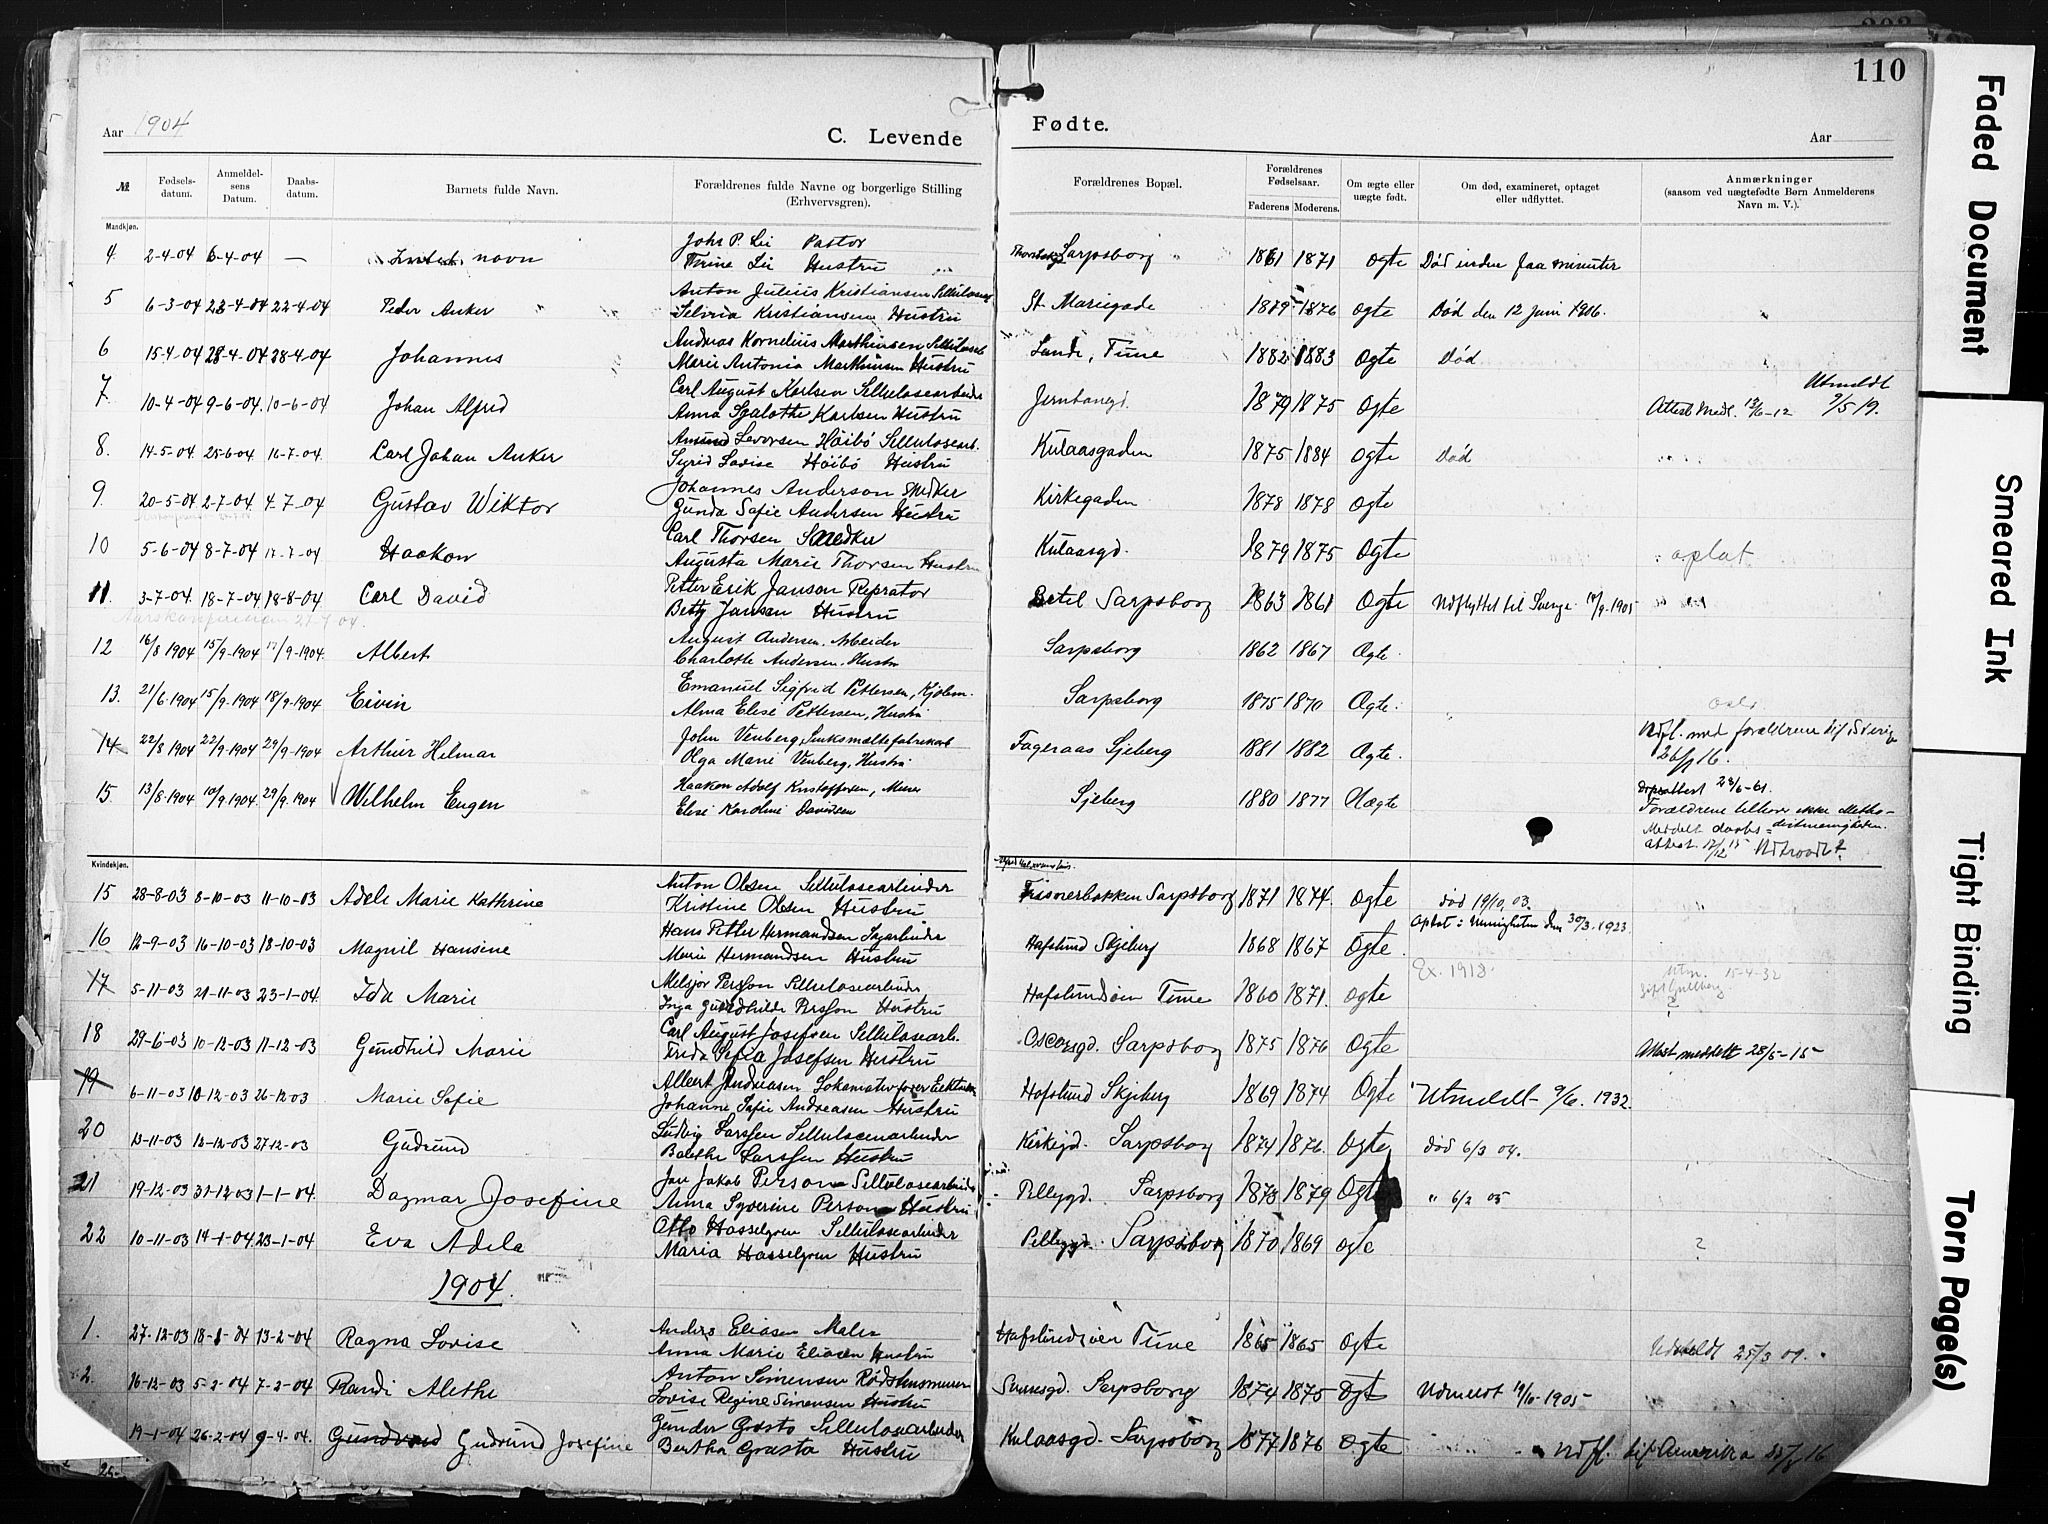 110
Aar 1904
C. Levende Fødte.
Aar
№ Fødselsdatum. Anmeldelsens Datum. Daabsdatum. Barnets fulde Navn. Forældrenes fulde Navne og borgerlige Stilling (Erhvervsgren). Forældrenes Bopæl. Forældrenes Fødselsaar. Faderens Moderens. Om ægte eller uægte født. Om død, examineret, optaget eller udflyttet. Anmærkninger (saasom ved uægtefødte Børn Anmelderens Navn m. V.).
Mandkjøn.
4. 2-4-04 6-4-04 — navn Johs P. Lie Pastor Sarpsborg 1861 1871 Ogte Død inden faa minuter
Trine Lie Hustru
5 6-3-04 22-4-04 22-4-04 Peder Anker Anton Julius Kristiansen St. Mariegade 1879 1876 Ogte Død den 12 Juni 1906.
Kristiansen Hustru
6 15-4-04 28-4-04 28-4-04 Johannes Andreas Kornelius Marthinsen Sellulosearb Lande, Tune 1882 1883 Ogte Død
Marie Antonia Marthinsen Hustru
7 10-4-04 9-6-04. 10-6-04 Johan Alfred Carl August Karlsen Sellulosearbeider Jernbanegd. 1879 1875 Ogte Attest Medl. 12/6-12 Utmeldt 9/5 19.
Anna Karlsen Hustru
8. 14-5-04 25-6-04 16-7-04. Carl Johan Anker Amund Levorsen Höibö Sellulosearb. Kulaasgaden 1875 1884 Ogte Død
Sigrid Lovise Höibö Hustru
9. 20-5-04 2-7-04 4-7-04 Gustav Wiktor Johannes Anderson Snedker Kirkegaden 1878 1878 Ogte
Gunda Sofie Andersen Hustru
10 5-6-04 8-7-04 17-7-04 Haakon Carl Thorsen Snedker Kulaasgd. 1879 1875 Ogte optat
Augusta Marie Thorsen Hustru
11. 3-7-04. 18-7-04 18-8-04 Carl David Petter Erik Janson Reprator Betel Sarpsborg 1863 1861 Ogte Udflyttet til Sverige 10/9. 1905
Betty Janson Hustru
12 16/8 1904 15/9-1904 17/9-1904. Albert August Andersen. Arbeider Sarpsborg 1862 1867 Ægte.
Charlotte Andersen. Hustru
13. 21/6 1904 15/9-1904 18/9-1904 Eivin Emanuel Sigfrid Pettersen, Sarpsborg 1875 1870 Ægte.
Alma Elise Pettersen, Hustru
14 22/8 1904 22/9-1904 29/9-1904 Arthur Hilmar John Venberg, Fageraas Sjeberg 1881 1882 Ægte. Udfl. med forældrene til Sverige
Olga Marie Venberg, Hustru 26/9 16.
15. 13/8 1904 10/9. 1904 29/9. 1904 Wilhelm Eugen Haakon Adolf Kristoffersen, Murer Sjeberg 1880 1877 Uægte Daapsattest 23/6-61.
Elise Karoline Davidsen Forældrene tilhører ikke Methodistmenigheten.
Meddelt daabsattest 17/12 15 Udtraadt?
Kvindekjøn.
15 28-8-03 8-10-03 11-10-03 Adele Marie Kathrine Anton Olsen Sellulosearbeider Sarpsborg 1871 1874. Ogte død 19/10, 03.
Kristine Olsen Hustru
16 12-9-03 16-10-03 18-10-03 Magnil Hansine Hans Petter Hermandsen Sagarbeider Hafslund Skjeberg 1868 1867 Ogte. Optat i Menigheten den 30/3. 1923.
Marie Hermandsen Hustru Ex. 1918.
17 5-11-03 21-11-03 23-1-04. Ida Marie Melsjor Persson Sellulosearbeider Hafslundsøen Tune 1860 1871. Ogte Utm. 15-4-32
Inga Gundhilde Persson Hustru
18 29-6-03 10-12-03 11-12-03 Gundhild Marie Carl August Josefsen Sellulosearb. Oscarsgd. Sarpsborg 1875 1876 Ogte Attest meddelt 28/5-15
Frida Sofia Josefsen Hustru
19 6-11-03 10-12-03 26-12-03 Marie Sofie Albert Andreasen Hafslund Skjeberg 1869 1874 Ogte Utmeldt 9/6. 1932.
Johanne Sofie Andreasen Hustru
20 13-11-03 12-12-03 27-12-03 Gudrund Ludvig Larssen Sellulosearbeider Kirkegd. Sarpsborg 1874 1876. Ogte død 6/3 04.
Larssen Hustru
21 19-12-03 31-12-03 1-1-04. Dagmar Josefine Jan Jakob Person Sellulosearbeider Pellygd. Sarpsborg 1873 1879 Ogte " 6/2 05
Anna Syverine Person Hustru
22 10-11-03 14-1-04. 23-1-04 Eva Adela Otto Hasselgren Sellulosearbeider Pellygd. Sarpsborg 1870 1869 Ogte ?
Maria Hasselgren Hustru
1904.
1. 27-12-03 18-1-04 13-2-04 Ragna Lovise Anders Eliasen Maler Hafslundsøen Tune 1865 1865 Ogte Udmeldt 25/3 09.
Anna Marie Eliasen Hustru
2. 16-12-03 5-2-04 7-2-04 Randi Alethe Anton Simensen Sarpsborg 1874 1875 Ogte Udmeldt 19/10-1905
Lovise Regine Simensen Hustru
19-1-04 26-2-04 9-4-04. Gudrund Josefine Gunder Grasto Sellulosearbeider Kulaasgd. Sarpsborg 1877 1876 Ogte Udfl. til Amerika 16
Bertha Grasto Hustru
Faded Document
Smeared Ink
Tight Binding
Torn Page(s)